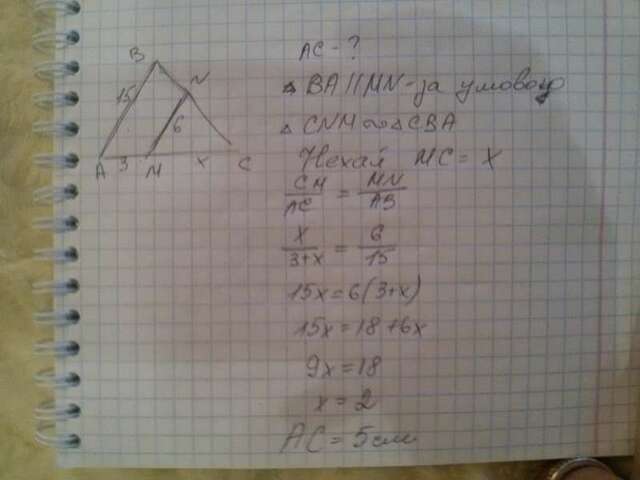 B
N
15
6
A 3 M x C
AC - ?
△ BA || MN - за умовою
△ CNM ∾ △ CBA
Нехай MC = X
CM / AC = MN / AB
x / 3+x = 6 / 15
15x = 6(3+x)
15x = 18 + 6x
9x = 18
x = 2
AC = 5 см